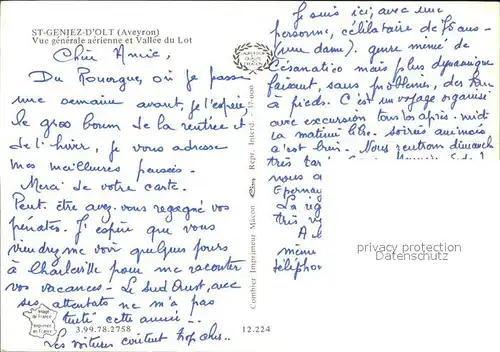 ST-GENIEZ-D'OLT (Aveyron)
Vue générale aérienne et Vallée du Lot
Chère Annie,
Du Rouergue, où je passe
une semaine avant, je l'espère,
le gros boum de la rentrée et
de l'hiver, je vous adresse
mes meilleures pensées.
Merci de votre carte.
Peut-être avez-vous regagné vos
pénates. J'espère que vous
viendrez me voir quelques jours
à Charleville pour me raconter
vos vacances. Le Sud Ouest, avec
ses attentats ne m'a pas
tentée cette année...
Les voitures coûtent trop cher..
Je suis ici, avec une
personne, célibataire de 75 ans
(une dame). genre
mais plus dynamique
faisant, sans problèmes, des
à pieds. C'est un voyage organisé
avec excursion tous les après-midi
la matinée libre. soirées animées
c'est bien. Nous rentrons dimanche
très tar
nous a
Epernay
La rég
très v
A b
même
téléphon
Combier Imprimeur Mâcon
Repr. Interd. 17-600
image de France
imprimée en France
3.99.78.2758
12.224
privacy protection
Datenschutz